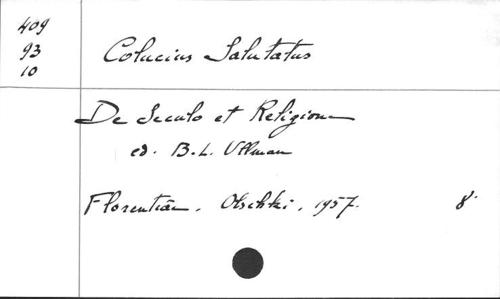 409
93
10
Colucius Salutatus
De Seculo et Religione
ed. B.L. Ullman
Florentiae. Olschki, 1957. 8°